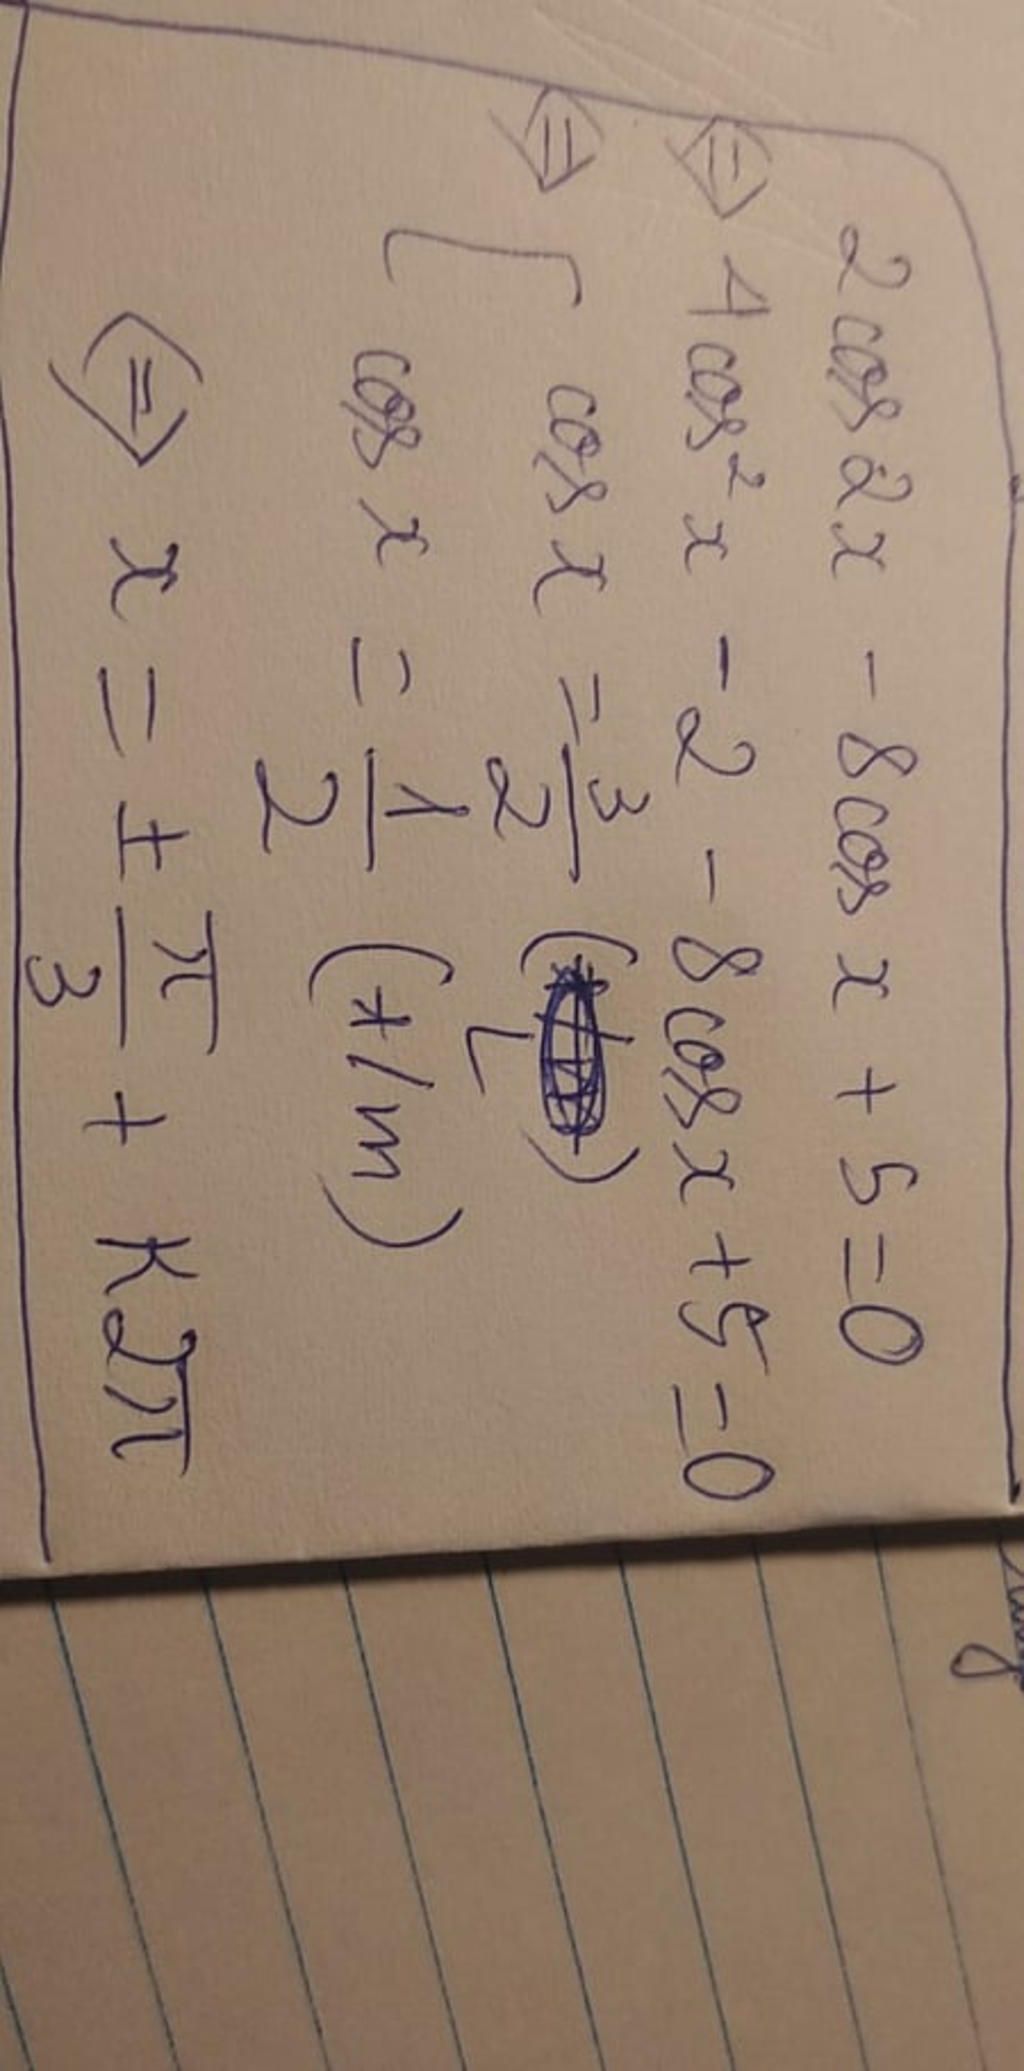 2cos2x - 8cosx + 5 = 0
⇔ 4cos²x - 2 - 8cosx + 5 = 0
⇔ [ cos x = 3/2 (L)
cos x = 1/2 (t/m)
⇔ x = ± π/3 + K2π